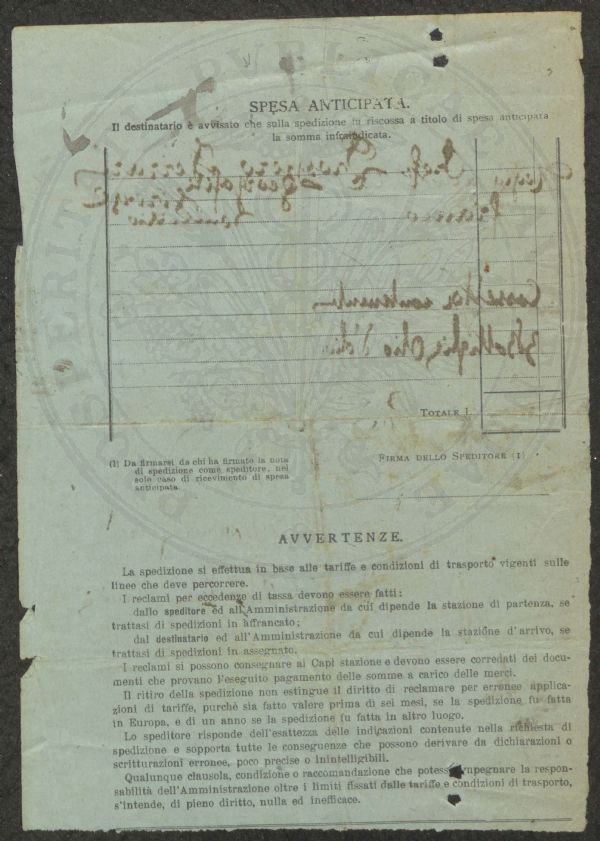 SPESA ANTICIPATA.
Il destinatario è avvisato che sulla spedizione fu riscossa a titolo di spesa anticipata
la somma infraindicata.
Cassetta contenente
Bottiglie Olio
TOTALE L.
(1) Da firmarsi da chi ha firmato la nota
di spedizione come speditore, nel
solo caso di ricevimento di spesa
anticipata.
FIRMA DELLO SPEDITORE (1)
AVVERTENZE.
La spedizione si effettua in base alle tariffe e condizioni di trasporto vigenti sulle
linee che deve percorrere.
I reclami per eccedenze di tassa devono essere fatti:
dallo speditore ed all'Amministrazione da cui dipende la stazione di partenza, se
trattasi di spedizioni in affrancato;
dal destinatario ed all'Amministrazione da cui dipende la stazione d'arrivo, se
trattasi di spedizioni in assegnato.
I reclami si possono consegnare ai Capi stazione e devono essere corredati dei docu-
menti che provano l'eseguito pagamento delle somme a carico delle merci.
Il ritiro della spedizione non estingue il diritto di reclamare per erronee applica-
zioni di tariffe, purchè sia fatto valere prima di sei mesi, se la spedizione fu fatta
in Europa, e di un anno se la spedizione fu fatta in altro luogo.
Lo speditore risponde dell'esattezza delle indicazioni contenute nella richiesta di
spedizione e sopporta tutte le conseguenze che possono derivare da dichiarazioni o
scritturazioni erronee, poco precise o inintelligibili.
Qualunque clausola, condizione o raccomandazione che potesse impegnare la respon-
sabilità dell'Amministrazione oltre i limiti fissati dalle tariffe e condizioni di trasporto,
s'intende, di pieno diritto, nulla ed inefficace.